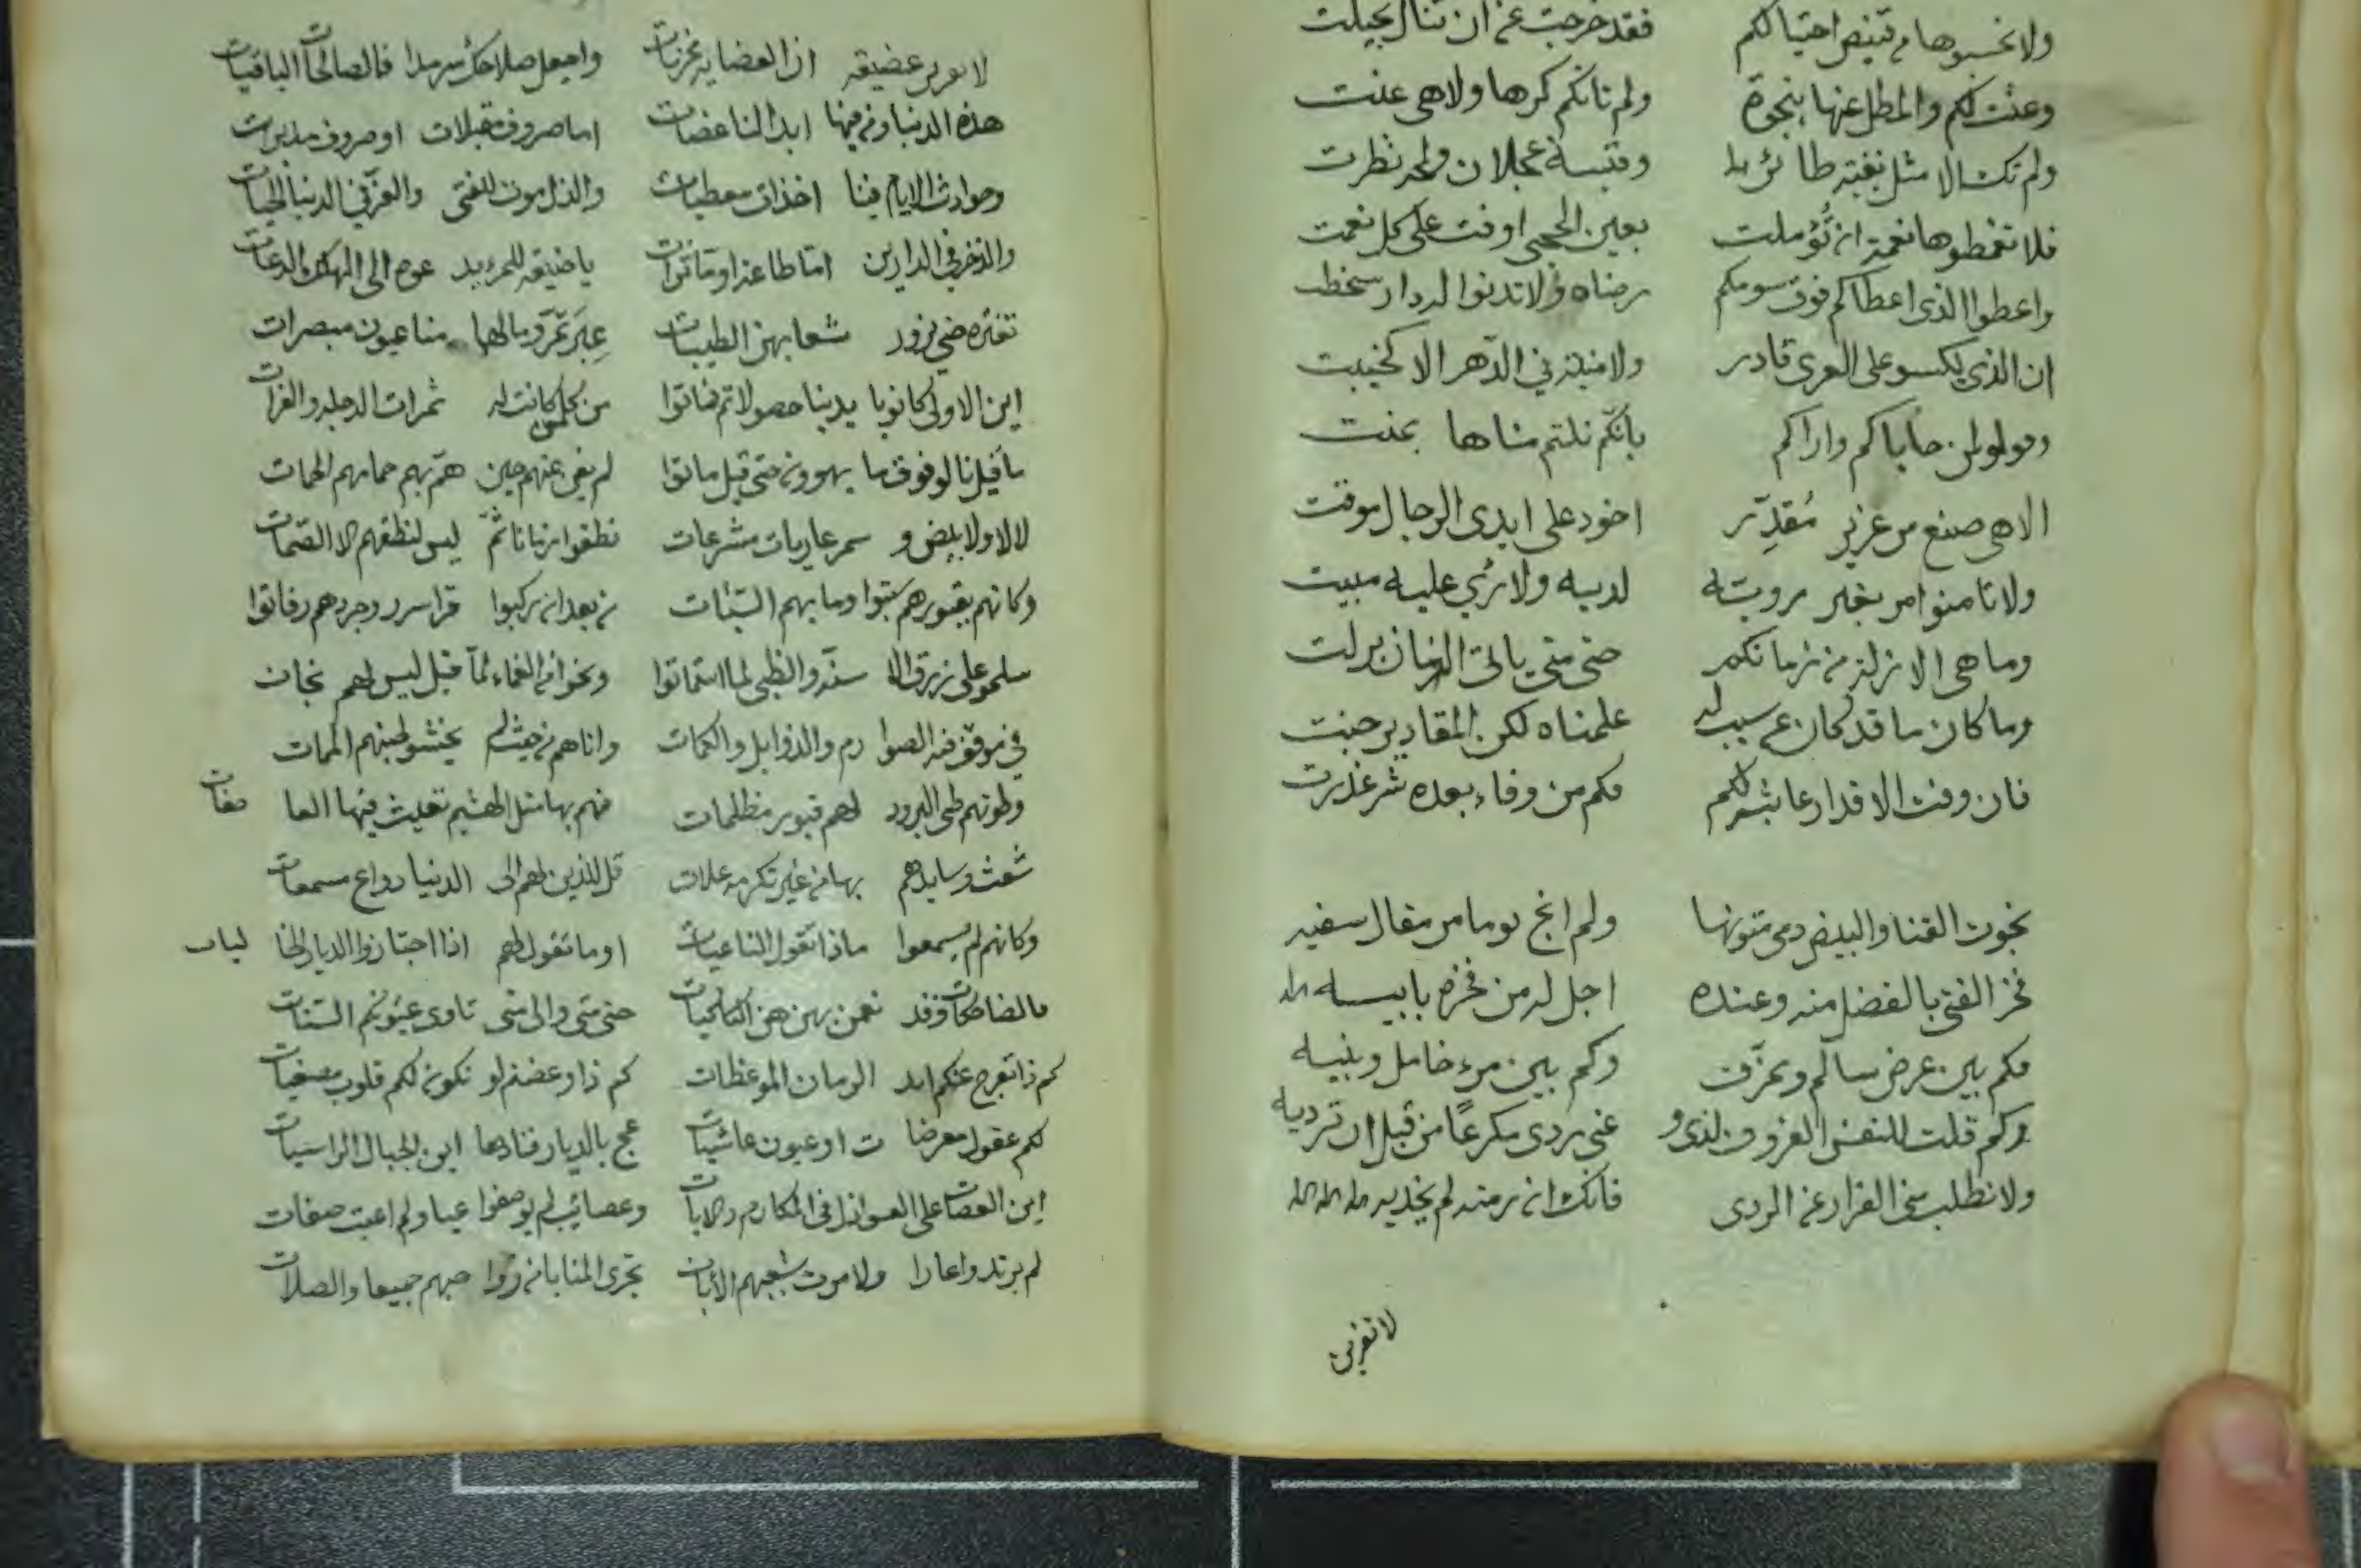 ولا تحسبوها من قنيص احتيالكم فقد خرجت عن ان تنال بحيلت
وعنت لكم والمطل عنها بنجوة ولم تاتكم كرها ولا هى عنت
ولم تك الا مثل نغبة طائر وقبسة عجلان ولمحه نظرت
فلا تغمطوها نعمة ان تؤملت بعين الحجى اوفت على كل نعمت
واعطوا الذى اعطاكم فوق سومكم رضاه ولا تدنوا لدار سخطت
ان الذى يكسو على العرى قادر ولا منية في الدهر الا كخيبت
وقولوا لمن حاباكم واراكم بانكم نلتم مناها بمنت
الا هى صنع من عزيز مقدّر اخود على ايدى الرجال موقت
ولا تامنوا امر بغير رويته لديه ولا رئي عليه مبيت
وما هى الا زلة من زمانكم حتى متى ياتى الزمان بزلت
وما كان ما قد كان عن سبب له علمناه لكن المقادير جنت
فان وفت الاقدار عا بشركم فكم من وفاء بعده شر غدرت
نجوت القنا والبيض دمى متونها ولم انج يوما من مقال سفيه
فخر الفتى بالفضل منه وعنده اجل له من فخره بابيه
فكم بين عرض سالم وممزق وكم بين مرء خامل ونبيه
وكم قلت للنفس العزوف لذى و غنى ردى مكرعا من قبل ان ترديه
ولا تطلبي الفرار عن الردى فانك ان رمته لم تجديه
لا تقربى
لا تقربن عضيهة ان العضايه مخزيات واجعل صلاحك سرمدا فالصالحات الباقيات
هذه الدنيا ومن فيها ابدا لنا عضات اما صروف مقبلات او صروف مدبرات
وحوادث الايام فينا اخذات معطيات والذل موت للفتى والعز في الدنيا الحيات
والذخر في الدارين اما طاعة او ماثرات يا ضيقه للمرء يد عوه الى الهلك الدعات
تغتره حتى يزور شعابهن الطيبات عبر تمر وما لها منا عيون مبصرات
اين الاولى كانوا بايدينا حصولا ثم فاتوا من كل من كانت له ثمرات الدجلة والفرات
ما قيل نالوا فوق ما يهوون حتى قيل ماتوا لم يغن عنهم حين همّ بهم حمامهم الحمات
لا لا ولا بيض و سمر عاريات مشرعات نطقوا زمانا ثمّ ليس لنطقهم الا الصمات
وكانهم بقبورهم سبتوا وما بهم السبات من بعد ان ركبوا قرا سرر وجردهم رفاتوا
سلموا على زرق الا سنة والظبى لما استماتوا ونجوا من الغماء لما قيل ليس لهم نجات
في موقف فيه الصوا رم والذوابل والكمات واتاهم من حيث لم يخشوا لحينهم الممات
وطوتهم طى البرود لهم قبور مظلمات فهم بها مثل الهشيم تعيث فيها العا صفات
شعث وسايدهم بها من غير تكرمه علات قل للذين لهم الى الدنيا دواع مسمعات
وكانهم لم يسمعوا ماذا تقول الناعيات او ما تقول لهم اذا اجتازوا الديار الخا ليات
فالضاحكات وقد نعمن بهن هن الباكيات حتى متى والى متى تاوى عيونكم السنات
كم ذا تفرج عنكم ابد الزمان الموعظات كم ذا وعضتم لو تكون لكم قلوب مصغيات
لكم عقول معرضا ت او عيون عاشيات عج بالديار فنادها اين الجبال الراسيات
اين العصات على العواذل فى المكارم والابات وعصائب لم يوصفوا عيبا ولم اعيت صفات
لم يرتدوا عارا ولا مرت بشعبهم الأبات تجرى المنايا ان رؤوا حبهم جميعا والصلات